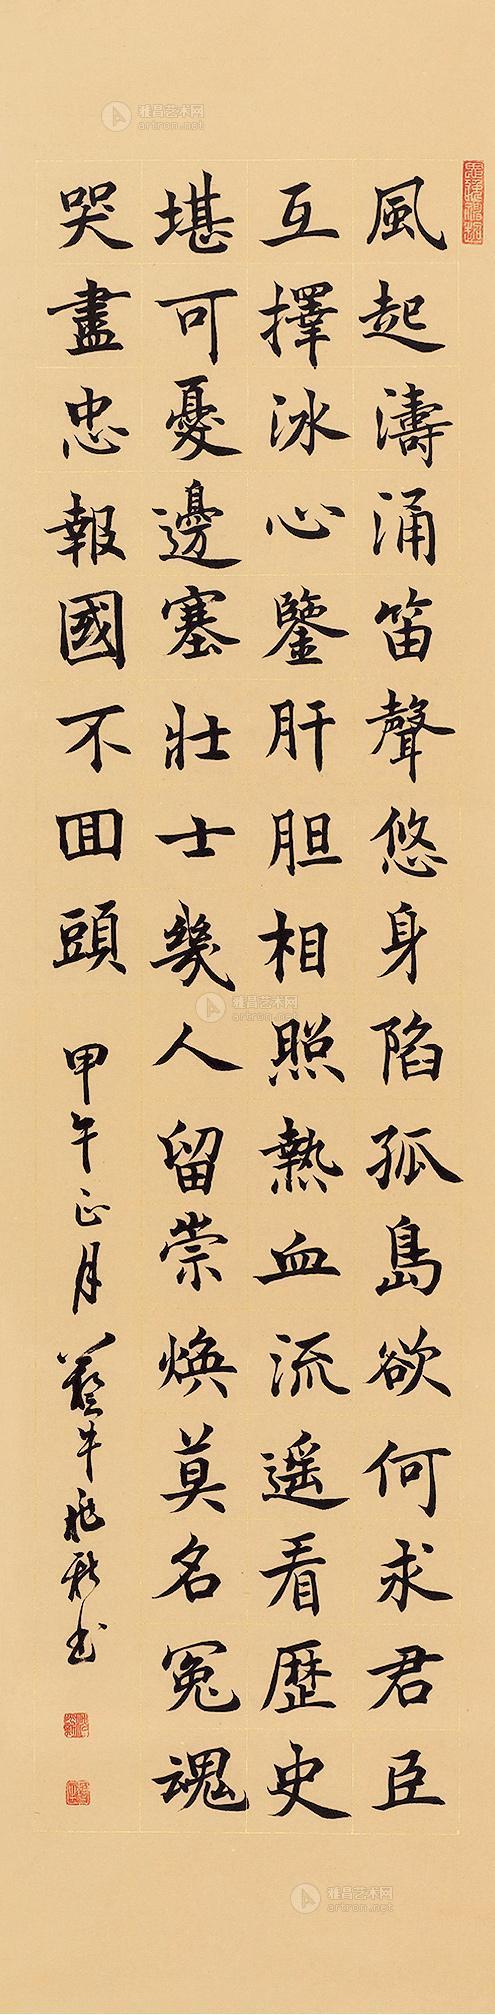 風起濤涌笛聲悠身陷孤島欲何求君臣
互擇泳心鑒肝胆相照熱血流遥看歷史
堪可憂邊塞壯士幾人留崇焕莫名冤魂
哭盡忠報國不回頭
甲午正月 牛 書
雅昌艺术网
artron.net
雅昌艺术网
artron.net
雅昌艺术网
artron.net